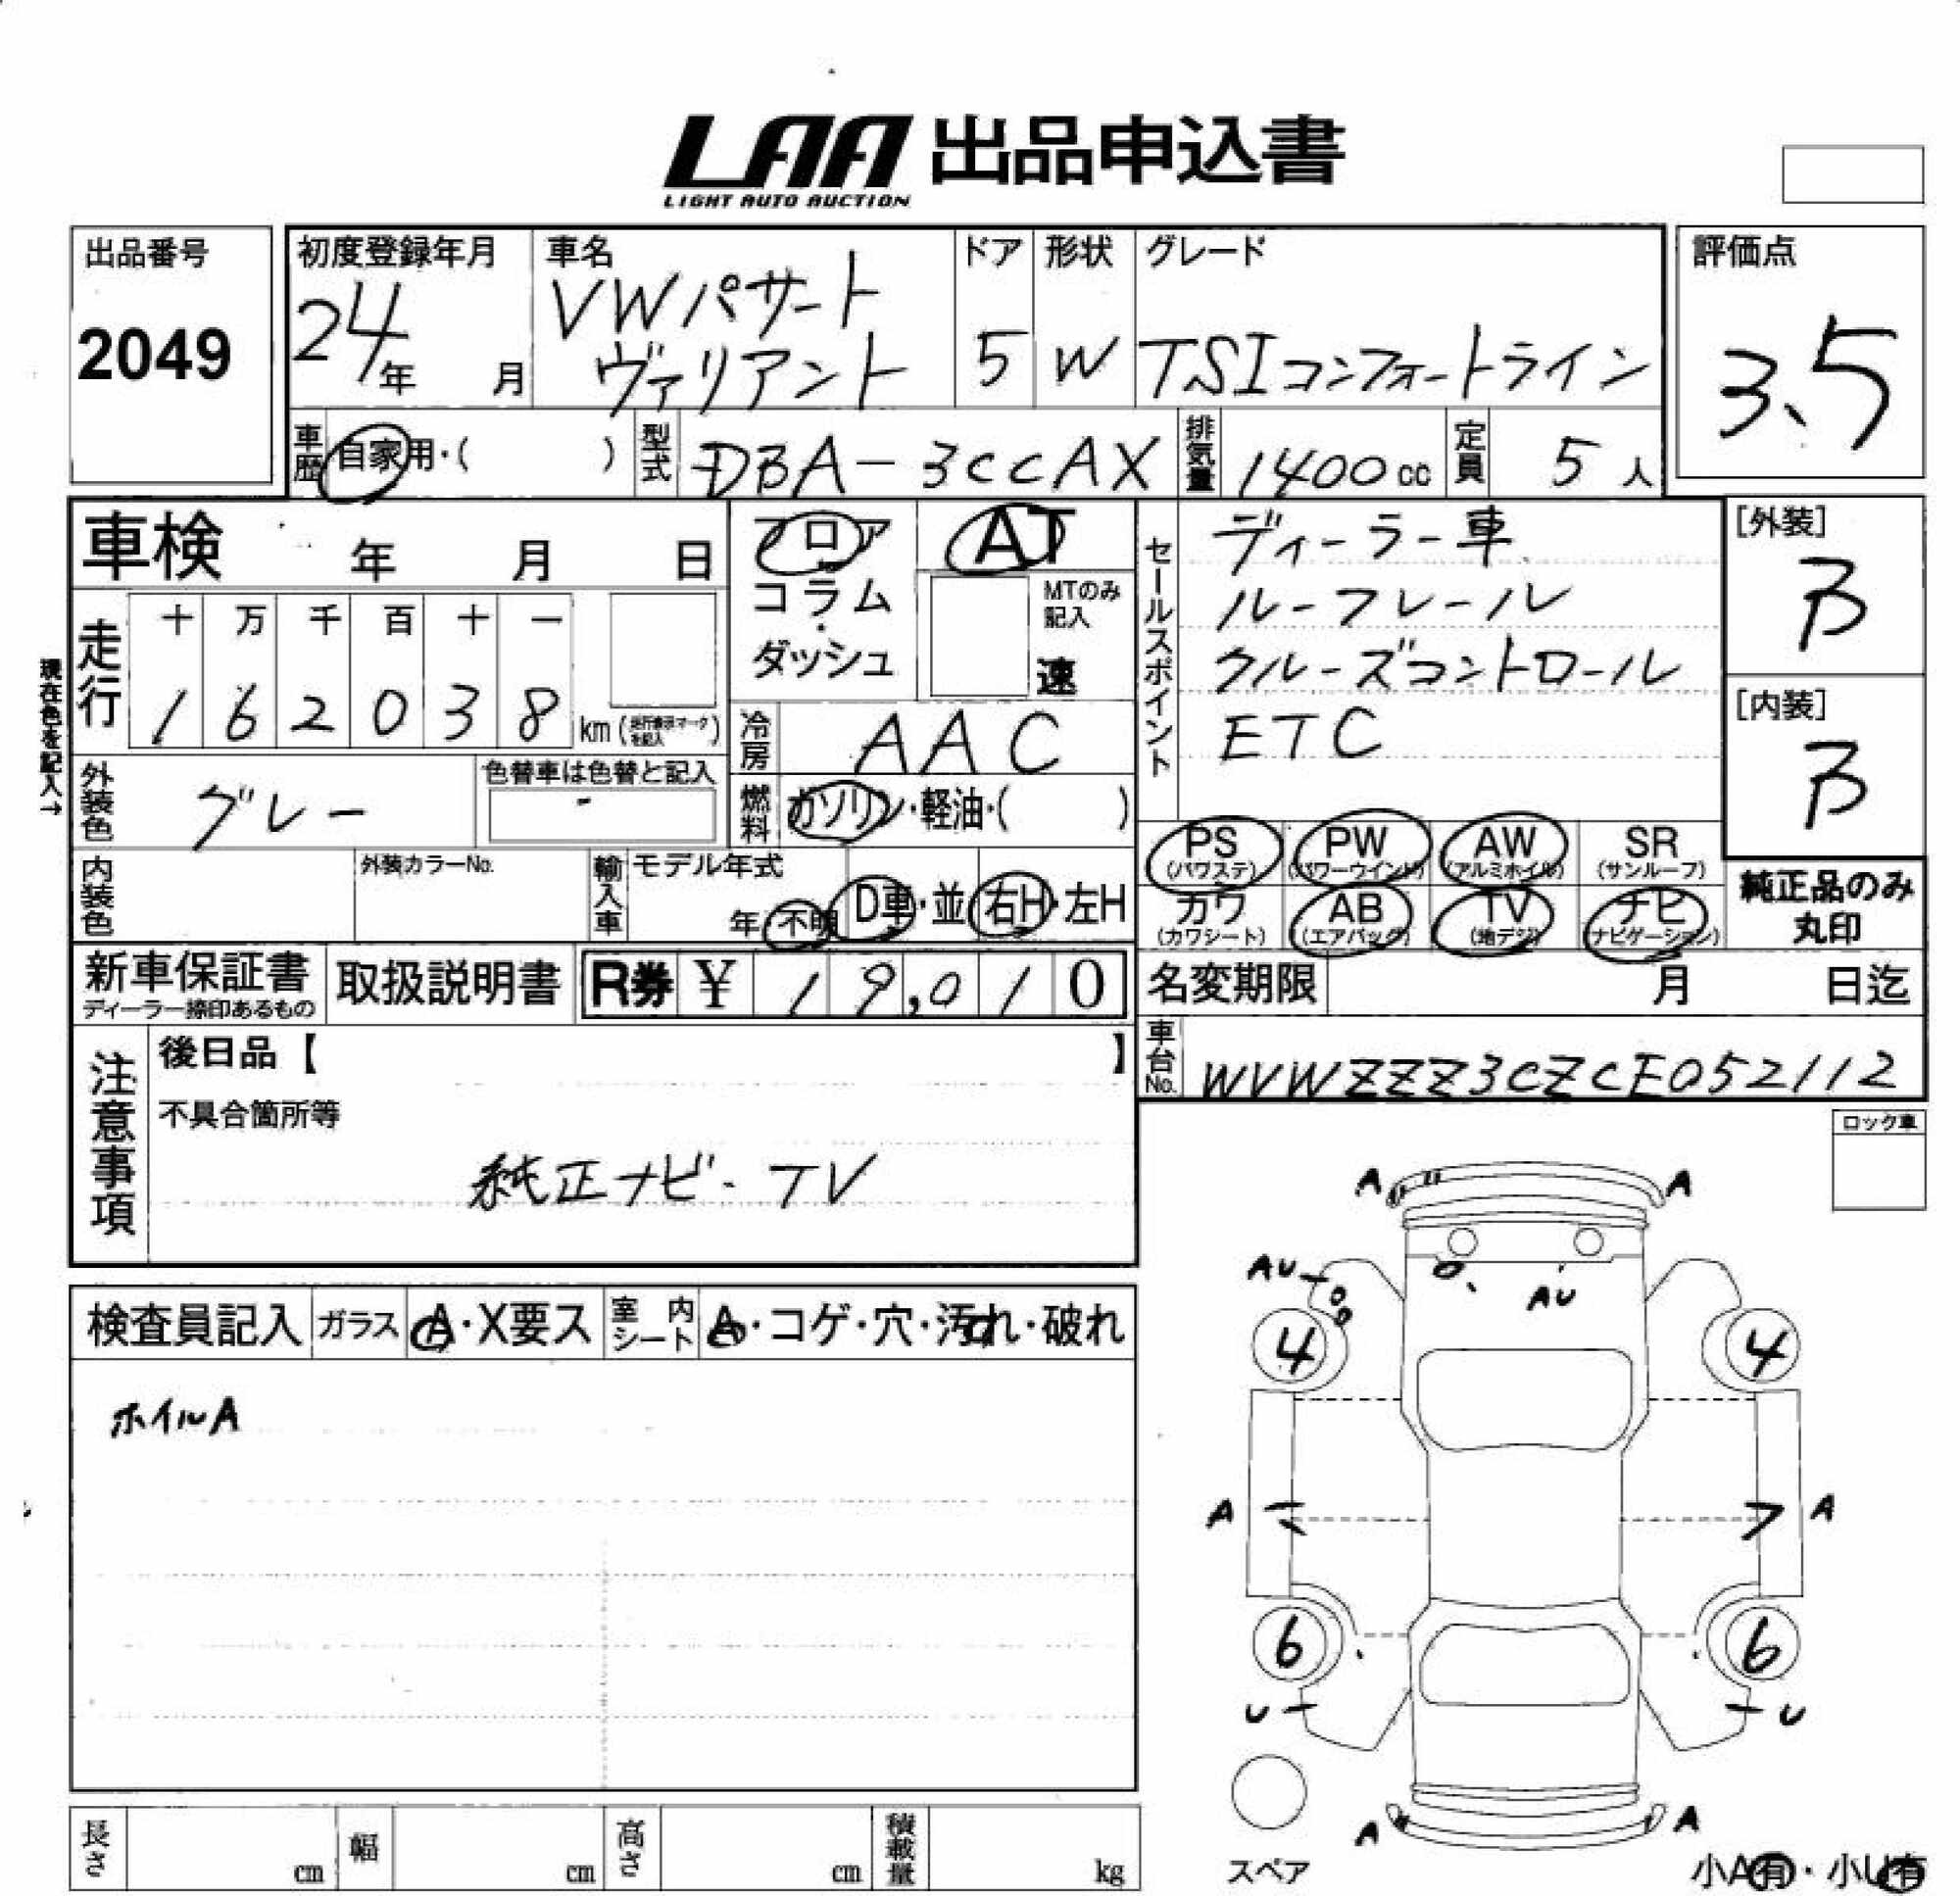 LAA 出品申込書
LIGHT AUTO AUCTION
出品番号
2049
初度登録年月
24年 月
車名
VWパサート
ヴァリアント
ドア
5
形状
W
グレード
TSIコンフォートライン
評価点
3.5
車歴 自家用・( )
型式 DBA-3CCAX
排気量 1400cc
定員 5人
車検 年 月 日
フロア
コラム
ダッシュ
AT
MTのみ
記入
速
セールスポイント
ディーラー車
ルーフレール
クルーズコントロール
ETC
[外装]
B
[内装]
B
現在色を記入→
走行
十 万 千 百 十 一
1 6 2 0 3 8 km
冷房 AAC
外装色 グレー
色替車は色替と記入
-
燃料 ガソリン・軽油・( )
PS PW AW SR
(パワステ) (パワーウインド) (アルミホイル) (サンルーフ)
カワ AB TV ナビ
(カワシート) (エアバッグ) (地デジ) (ナビゲーション)
純正品のみ
丸印
内装色
外装カラーNo.
輸入車
モデル年式
年 不明
D車・並
右H・左H
新車保証書
ディーラー捺印あるもの
取扱説明書
R券 ¥ 19,010
名変期限 月 日迄
車台No. WVWZZZ3CZCE052112
注意事項
後日品【 】
不具合箇所等
純正ナビ・TV
ロック車
検査員記入 ガラス A・X要ス 室内シート A・コゲ・穴・汚れ・破れ
ホイルA
A A
AU AU
4 4
A A
6 6
U U
A A
スペア
小A有・小U有
長さ cm 幅 cm 高さ cm 積載量 kg